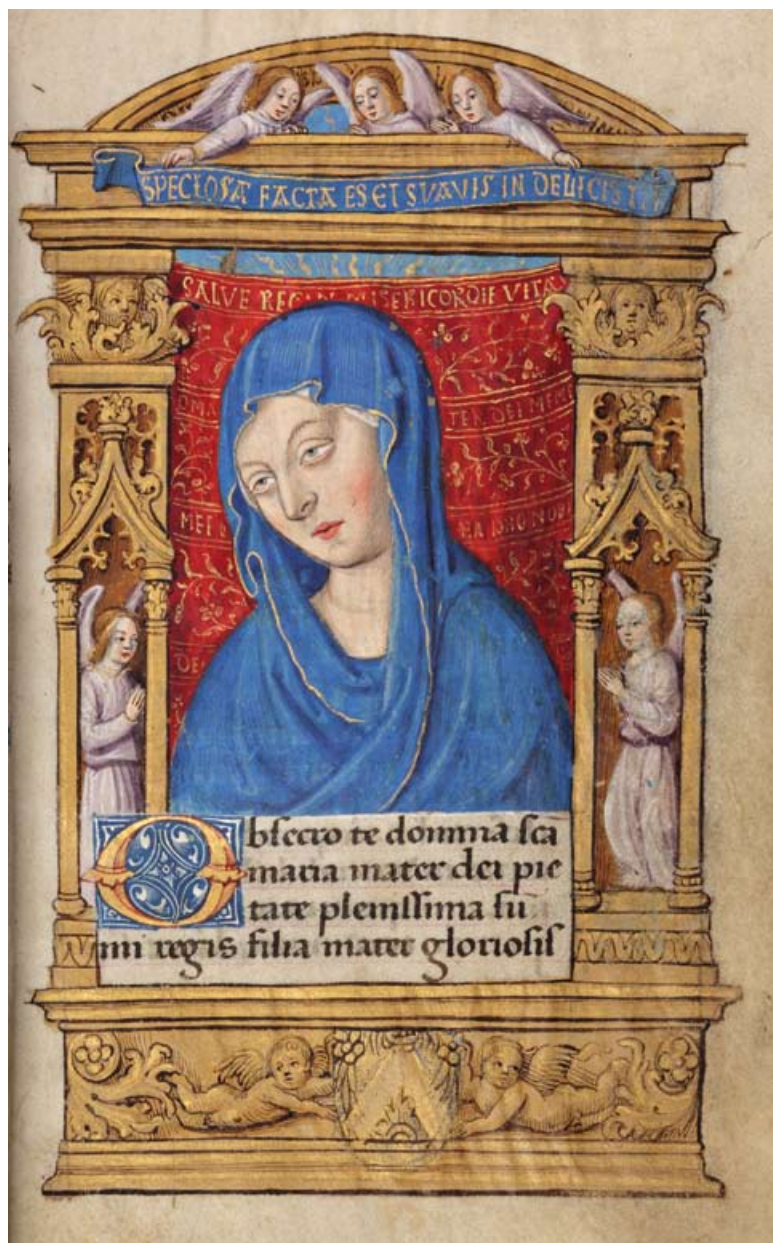 SPECIOSA FACTA ES ET SVAVIS IN DELICIIS
SALVE REGINA MISERICORDIE VITA
TER DEI MEM
MEI
Obsecro te domina sca
maria mater dei pie
tate plenissima su
mi regis filia mater gloriosis